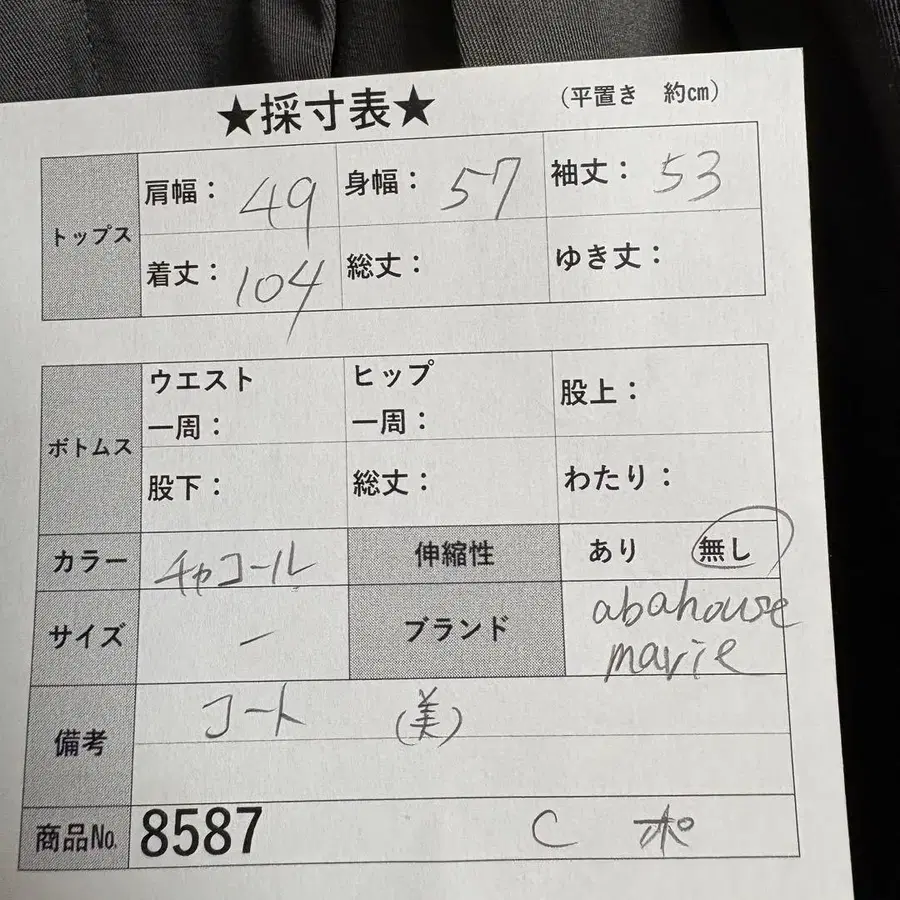 ★採寸表★ （平置き 約㎝）
トップス
肩幅： 49 身幅： 57 袖丈： 53
着丈： 104 総丈： ゆき丈：
ボトムス
ウエスト一周： ヒップ一周： 股上：
股下： 総丈： わたり：
カラー チャコール 伸縮性 あり 無し
サイズ ー ブランド abahouse
mavie
備考 コート (美)
商品№ 8587 C ポ